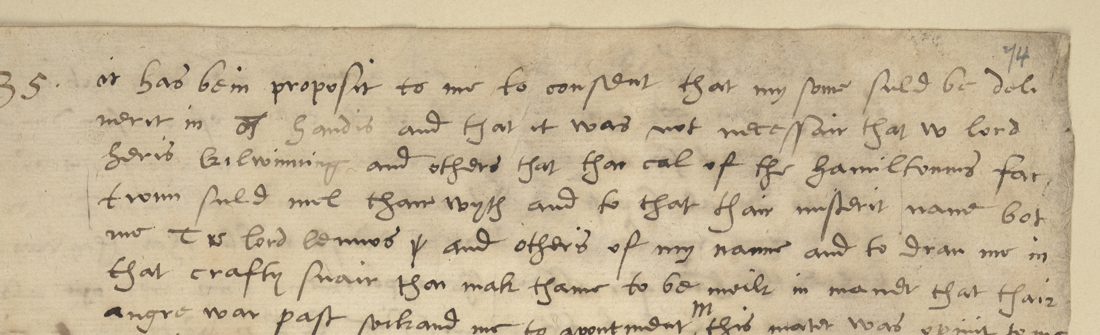 74
35. it has bein proposit to me to consent that my sone suld be deli
uerit in handis and that it was not necessair that w lord
heris kilwinning and others that thai cal of the hamiltonnis fac
tionn suld mel thame wyth and to that thair misterit nane bot
me lord lennos and others of my name and to drau me in
that crafty snair thai mak thame to be meilk in mandt that thair
angre war past me to apontment this mater was opinit to me